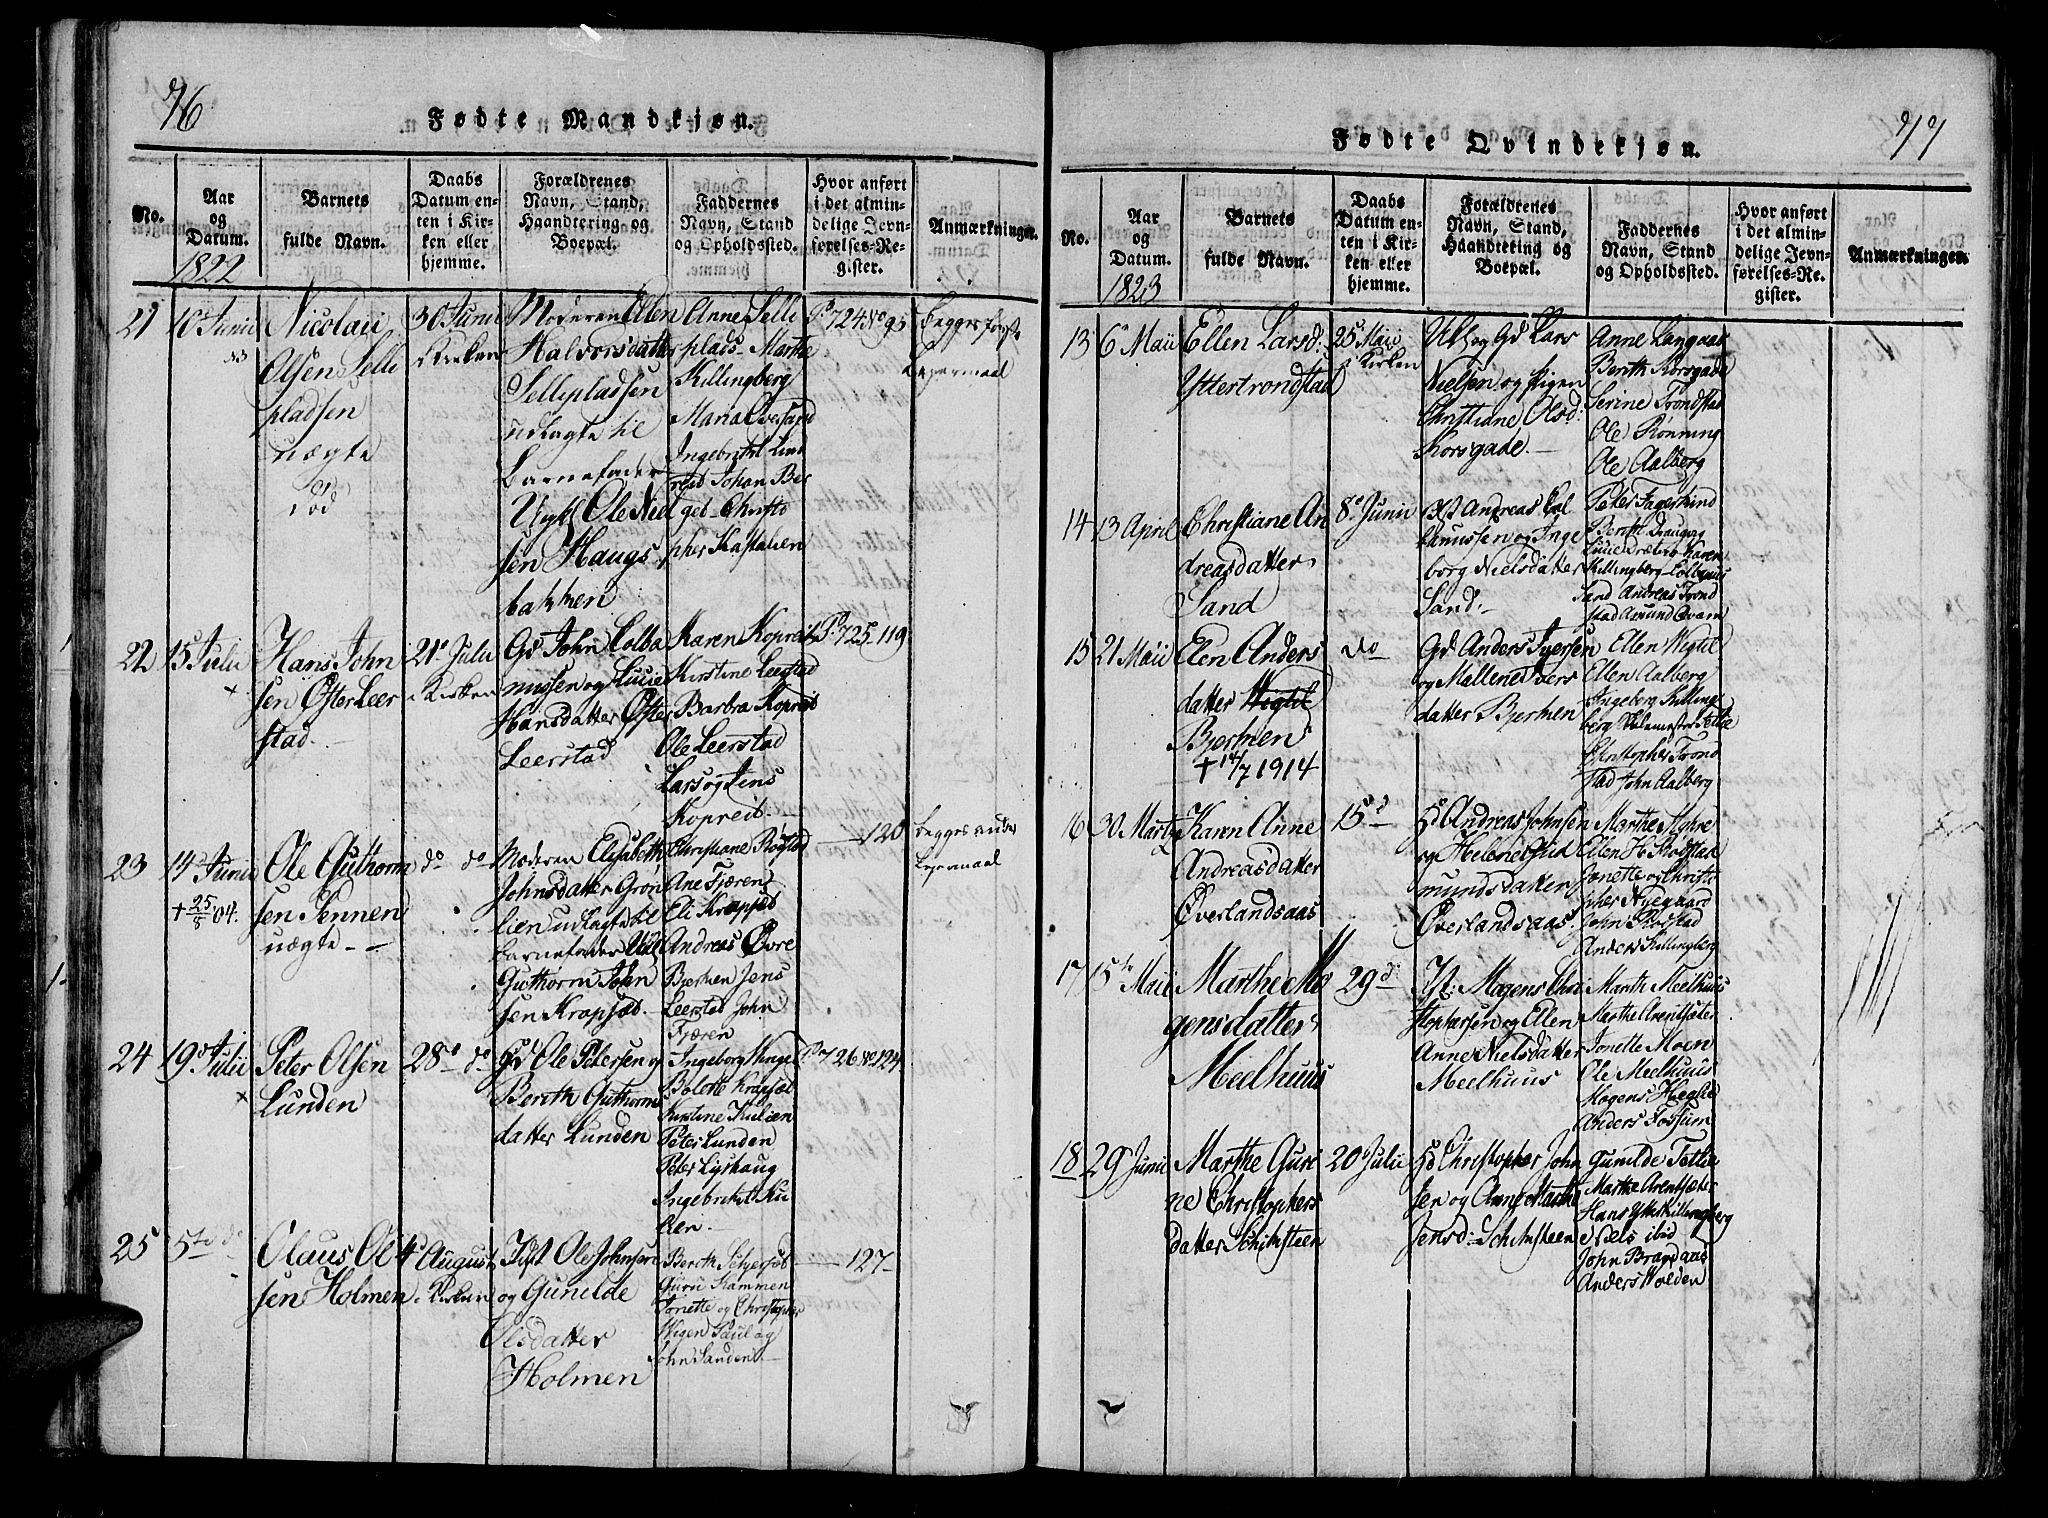 76
Fødte Mandkjøn.
No.
Aar
og
Datum.
Barnets
fulde Navn.
Daabs
Datum en-
ten i Kir-
ken eller
hjemme.
Forældrenes
Navn, Stand,
Haandtering og
Boepæl.
Faddernes
Navn, Stand
og Opholdssted.
Hvor anført
i det almin-
delige Jevn-
førelses-Re-
gister.
Anmærkninger.
1822
21
10 Junii
Nicolaii
Olsen Selli
pladsen
uægte
død
30 Junii
i Kirken
Moderen Ellen
Halvorsdatter
Selliepladsen
udlagte til
Barnefader
Ole Niel
sen Haugs
bakken
Anne Selli
plads - Marthe
Killingberg
Maria Overland
Ingebrikt Lund
Johan Ber
get - Christo
pher Kastalien
P. 724 No 95
Begges første
Leiermaal
22
15 Julii
Hans John
sen Øster Leer
stad.
21 Julii
i Kirken
Gd John Colba
nussen og Lucie
Hansdatter Øster
Leerstad
Karen Kopreit
Kirstine Leerstad
Barbra Kopreit
Ole Leerstad
Lars og Jens
Kopreit.
P. 725. 119
23
14 Junii
+ 25/5 04.
Ole Guthorm
sen Tennen
uægte
do do
Moderen Elisabeth
Johnsdatter Grøn
lien udlagte til
Barnefader
Guthorm John
sen Krapsæd.
Christiane Rostad
Ane Fjæren
Eli Krapsæd
Andreas Øvre
Bjerken Jens
Leerstad John
Fjæren
120
Begges andet
Leiermaal
24
19 Julii
Peter Olsen
Lunden
28 do
Gd Ole Petersen og
Berith Guthorms
datter Lunden
Ingeborg Vinge
Bolette Krapsæd
Kirstine Kulien
Peter Lunden
Peter Lyshaug
Ingebrikt Ku
lien.
P. 726 No 124
25
5te do
Claus Ol
sen Holmen
4 August
i Kirken
Inst Ole Johnsen
og Gunilde
Olsdatter
Holmen
Berith
Guru Stammen
Jonette og Christopher
Wigen Paul og
John Sanden
127
77
Fødte Qvindekjøn.
No.
Aar
og
Datum.
Barnets
fulde Navn.
Daabs
Datum en-
ten i Kir-
ken eller
hjemme.
Forældrenes
Navn, Stand,
Haandtering og
Boepæl.
Faddernes
Navn, Stand
og Opholdssted.
Hvor anført
i det almin-
delige Jevn-
førelses-Re-
gister.
Anmærkninger.
1823
13
6 Maii
Ellen Larsd:
Yttertrondstad
25 Maii
i Kirken
og Gd Lars
Nielsen og Pigen
Christiane Olsd:
Korsgade.
Anne Langaas
Berith Korsgade
Serine Trondstad
Ole Rønning
Ole Aalberg
14
13 April
Christiane An
dreasdatter
Sand
8 Junii
Andreas Col
banussen og Inge
borg Nielsdatter
Sand
Peter Fagerhind
Berith Draugs
Lucie Karen
Killingberg Colbanus
Sand Andreas Trond
stad Amund Qvam
15
21 Maii
Elen Anders
datter Wigtil
Bjerken
+ 14/7 1914
do
Gd Anders Iversen
og Mallene Ivers
datter Bjerken
Ellen Wigtil
Ellen Aalberg
Ingeborg Killing
berg
Christopher Trond
stad John Aalberg
16
30 Martz
Karen Anne
Andreasdatter
Øverlandsaas
15 d
Andreas Johnsen
og Helene Gud
mundsdatter
Øverlandsaas.
Marthe Myhre
Ellen H. Rostad
Jonette og Christo
pher Nyegaard
John Rostad
Anders Killingberg
17
15te Maii
Marthe Mo
gensdatter
Meelhuus
29 d
Mogens Chri
stophersen og Ellen
Anne Nielsdatter
Meelhuus
Marth Meelhuus
Marthe Arentsæter
Jonette Moen
Ole Meelhuus
Mogens Heglie
Anders Fossum
18
29 Junii
Marthe Guri
ne Christophers
datter Schihsteen
20 Julii
Gd Christopher John
sen og Anne Marthe
Jensd: Schihsteen
Gunilde Follie
Marthe Arentsæter
Hans Ytterkillingberg
Niels ibid
John Bragdaas
Anders Holden